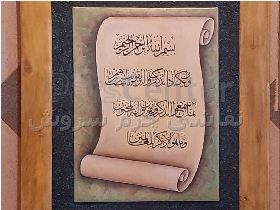 بسم الله الرحمن الرحيم
وإن يكاد الذين كفروا ليزلقونك بأبصارهم
لما سمعوا الذكر ويقولون إنه لمجنون
وما هو إلا ذكر للعالمين
نقاشی چرم سروش